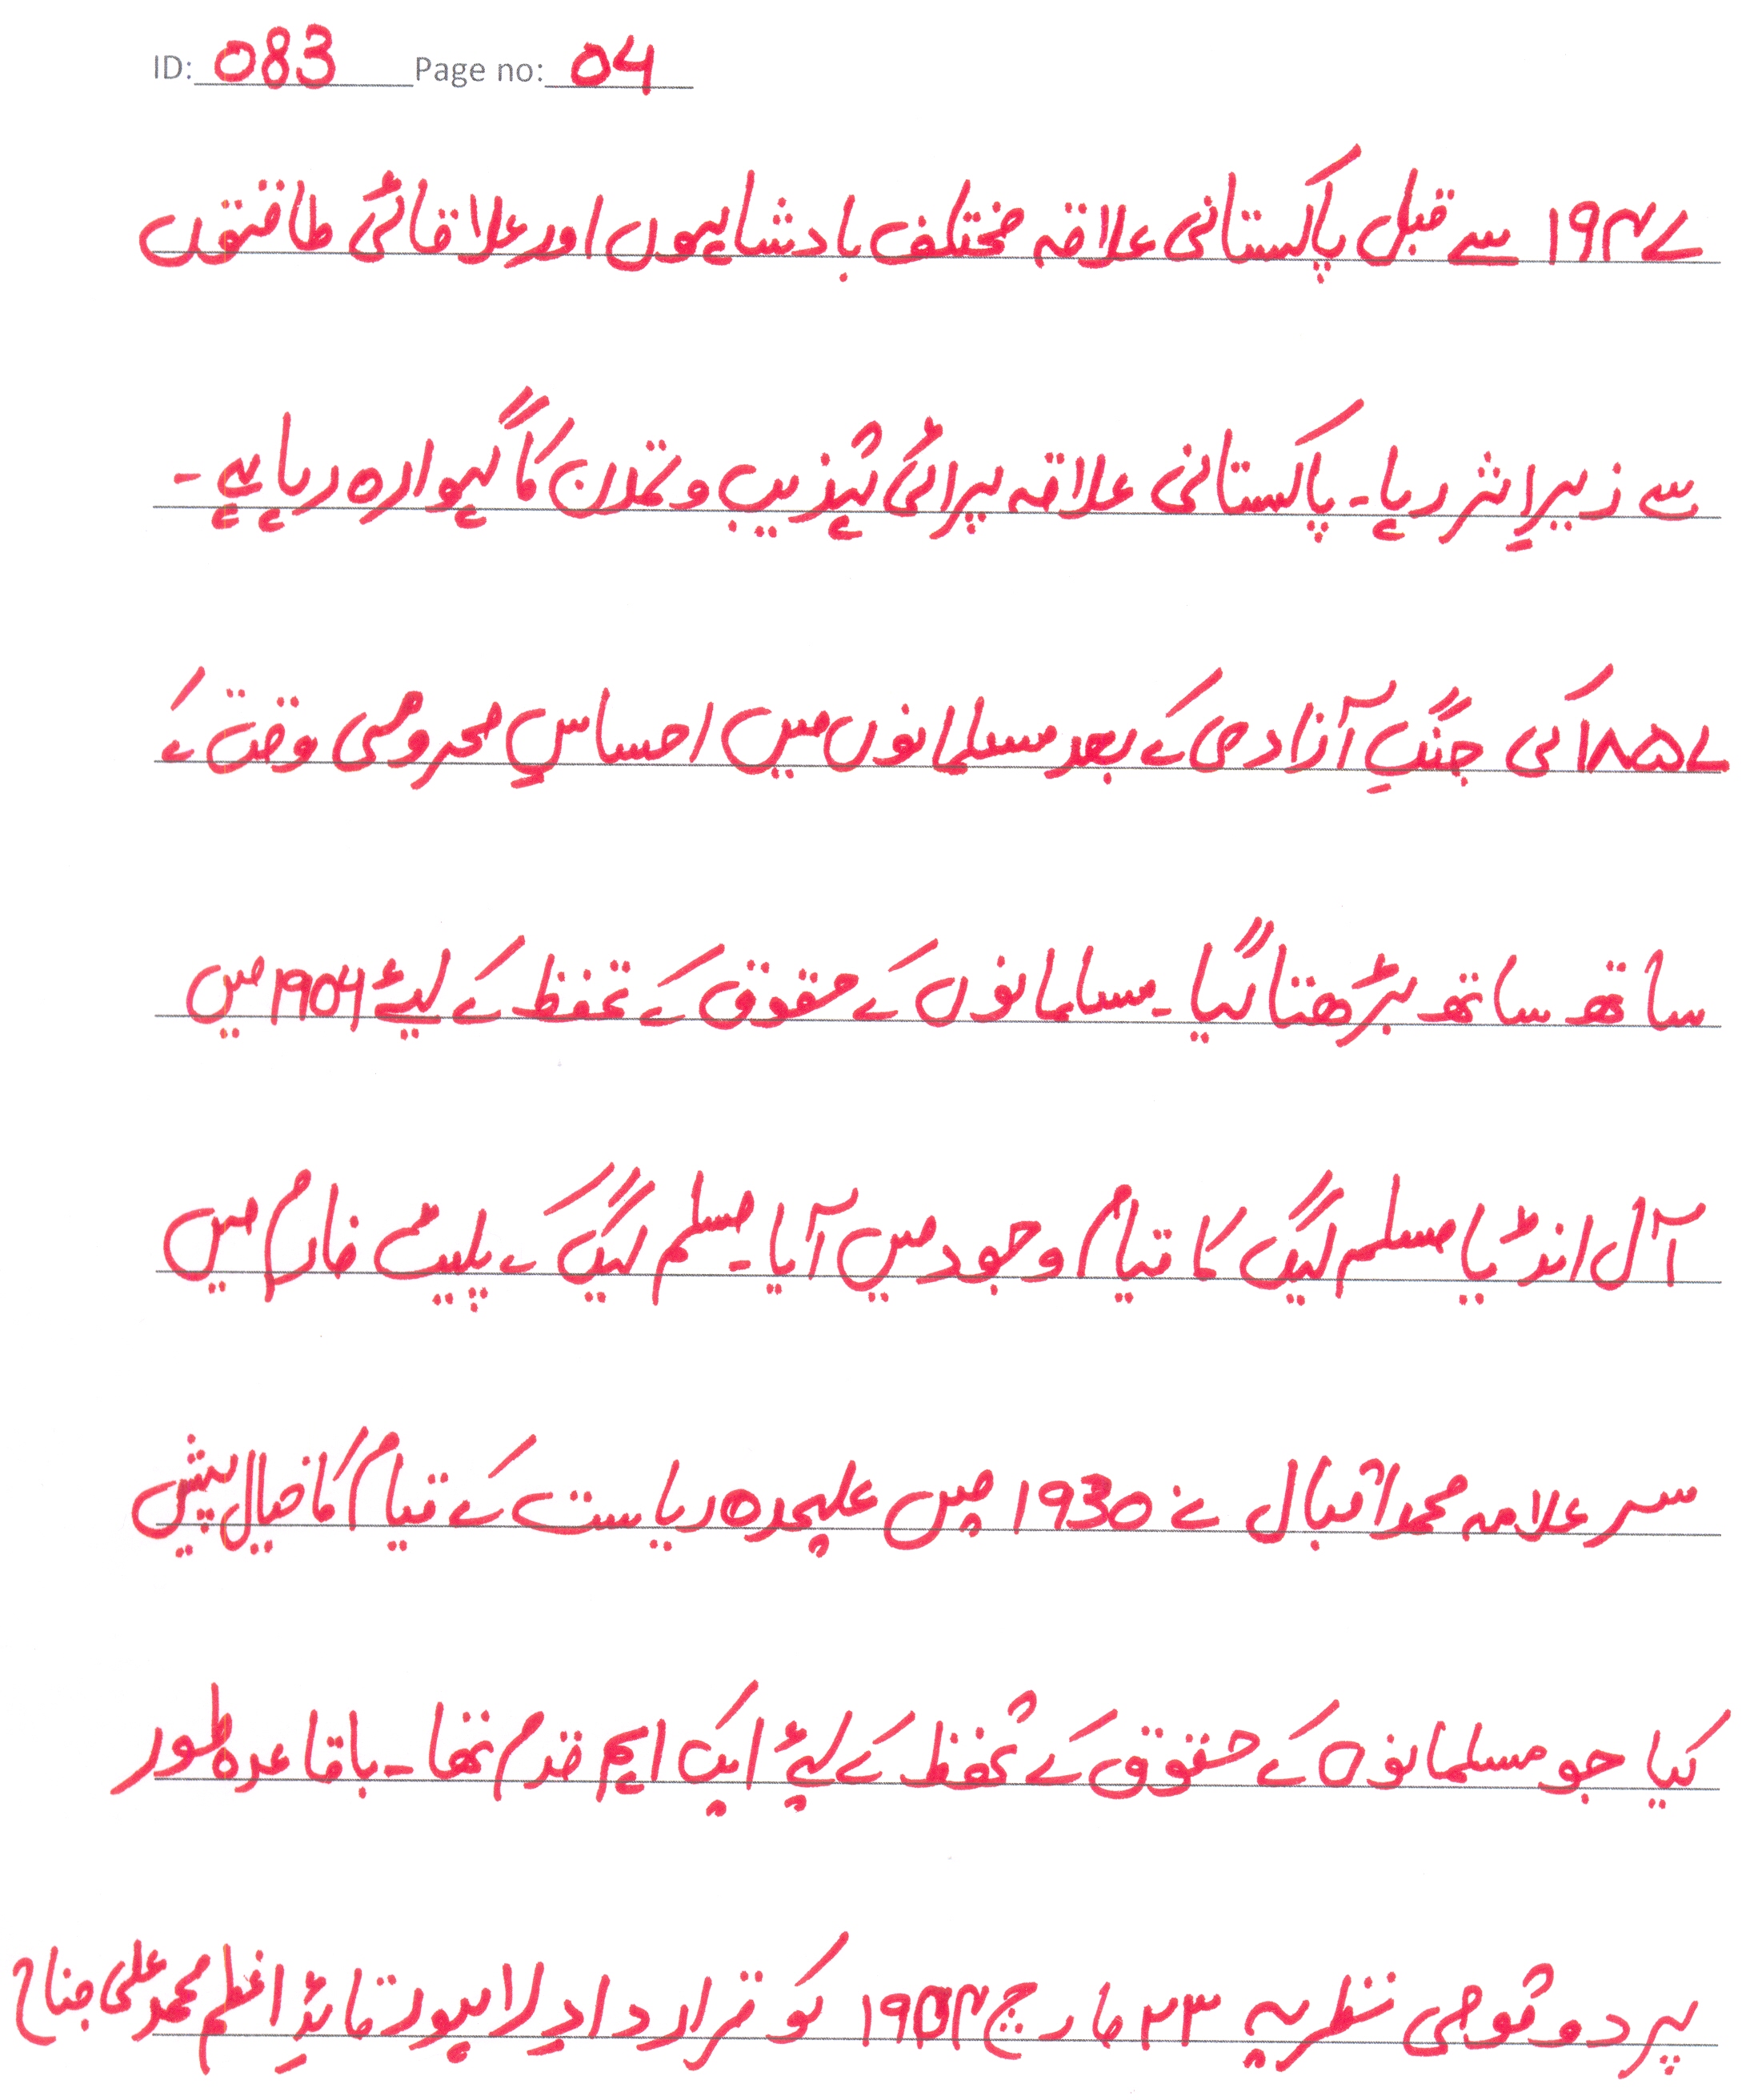 ID: 083 Page no: 04
۱۹۴۷ سے قبل پاکستانی علاقہ مختلف بادشاہوں اور علاقائی طاقتوں
سے زیرِ اثر رہا۔ پاکستانی علاقہ پرانی تہذیب و تمدن کا گہوارہ رہا ہے۔
۱۸۵۷ کی جنگِ آزادی کے بعد مسلمانوں میں احساسِ محرومی وقت کے
ساتھ ساتھ بڑھتا گیا۔ مسلمانوں کے حقوق کے تحفظ کے لیے ۱۹۰۶ میں
آل انڈیا مسلم لیگ کا قیام وجود میں آیا۔ مسلم لیگ کے پلیٹ فارم میں
سر علامہ محمد اقبال نے 1930 میں علیحدہ ریاست کے قیام کا خیال پیش
کیا جو مسلمانوں کے حقوق کے تحفظ کے لیے ایک اہم قدم تھا۔ باقاعدہ طور
پر دو قومی نظریہ ۲۳ مارچ کو قراردادِ لاہور قائدِ اعظم محمد علی جناح